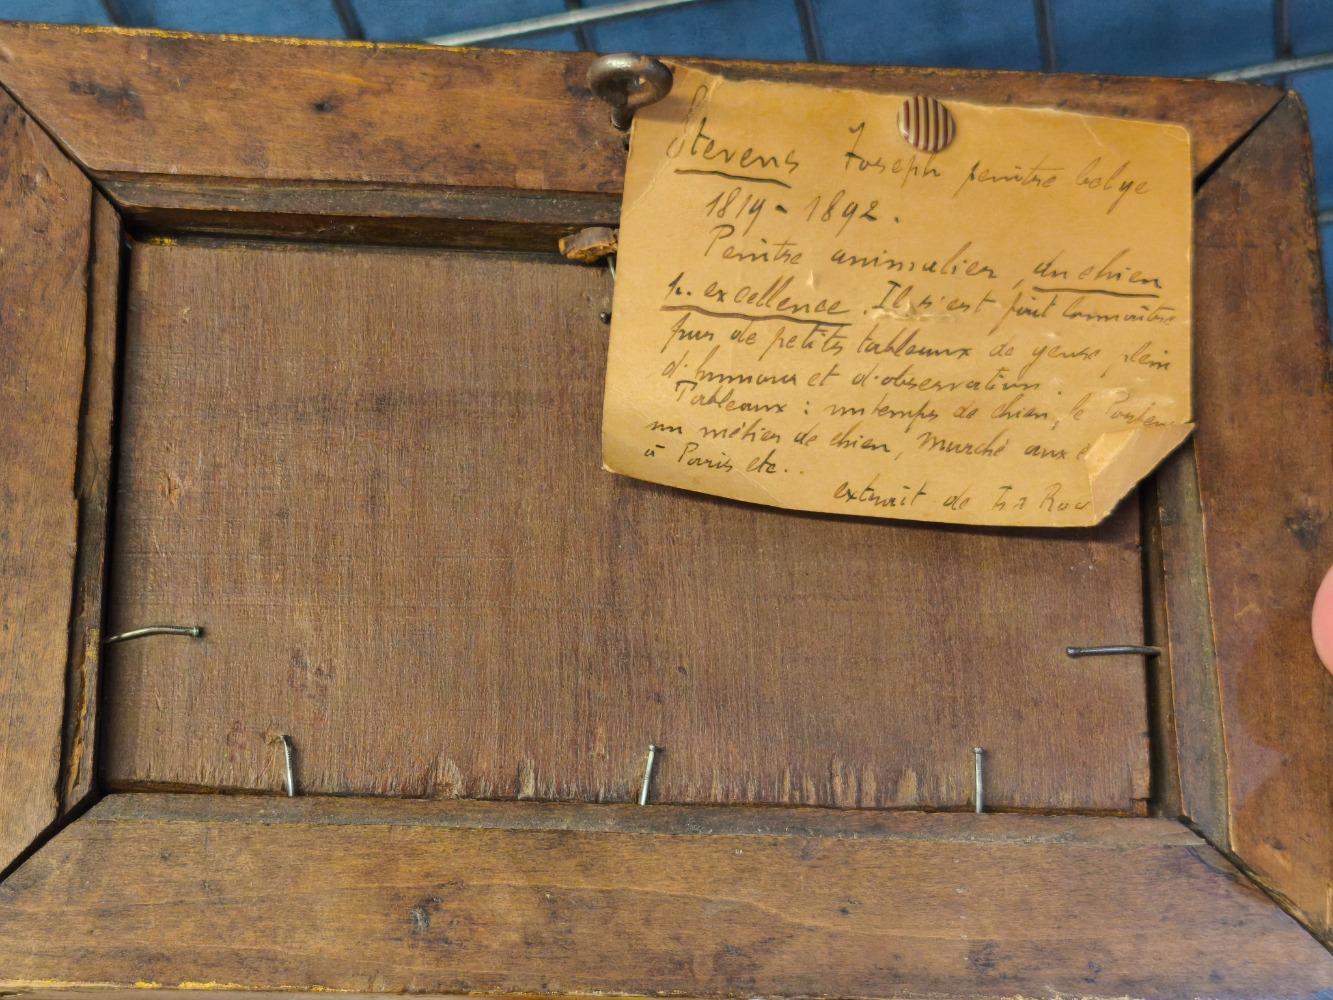 Stevens Joseph peintre belge
1819 - 1892.
Peintre animalier, du chien
p. excellence. Il s'est fait connaître
par de petits tableaux de genre, plein
d'humour et d'observation.
Tableaux : un temps de chien, le
un métier de chien, Marché aux
à Paris etc..
extrait de